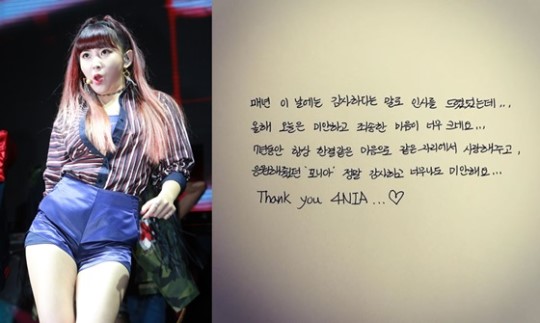 매년 이 날에는 감사하다는 말로 인사를 드렸었는데...,
올해 오늘은 미안하고 죄송한 마음이 너무 크네요...,
7년동안 항상 한결같은 마음으로 같은 자리에서 사랑해주고,
응원해줬던 '포니아' 정말 감사하고 너무나도 미안해요...
Thank you 4NIA...♡